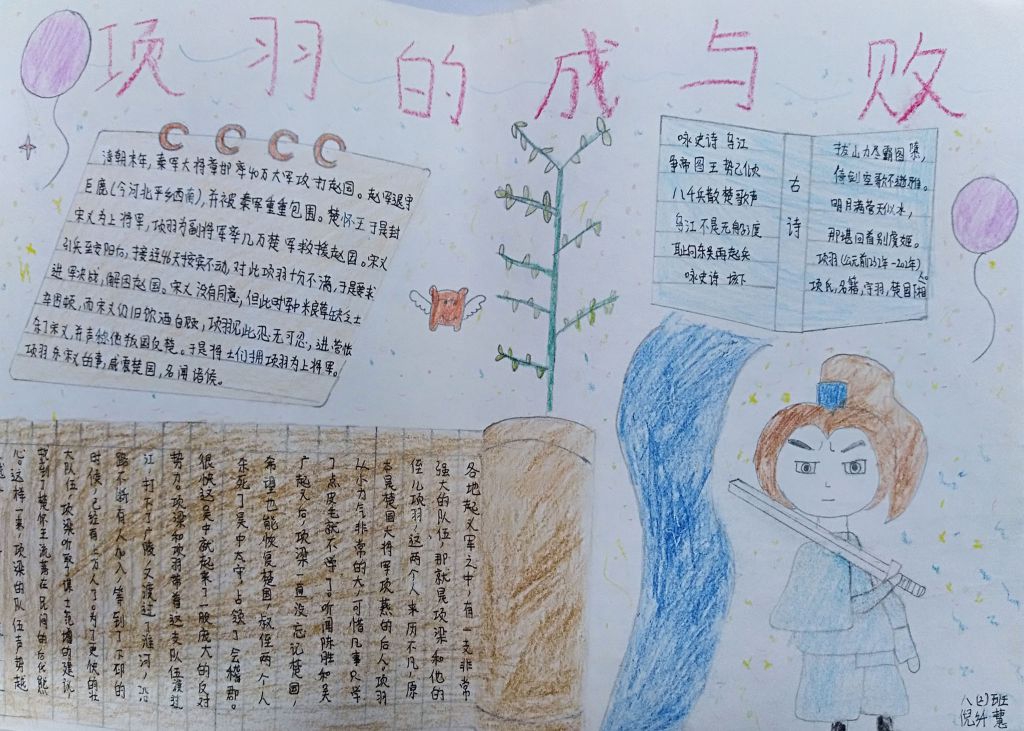 项羽的成与败
秦朝末年，秦军大将章邯率40万大军攻打赵国。赵军退守
巨鹿（今河北平乡西南），并被秦军重重包围。楚怀王于是封
宋义为上将军，项羽为副将军率几万楚军救援赵国。宋义
引兵至安阳后，接连46天按兵不动，对此项羽十分不满，于是要求
进军决战，解困赵国。宋义没有同意，但此时军中粮草缺乏士
卒困顿，而宋义仍旧饮酒自顾，项羽见此忍无可忍，进营帐
杀了宋义，并声称他叛国反楚。于是将士们拥项羽为上将军。
项羽杀宋义的事，威震楚国，名闻诸侯。
咏史诗 乌江
争帝图王势已倾
八千兵散楚歌声
乌江不是无船渡
耻向东吴再起兵
咏史诗 垓下
古诗
拔山力尽霸图隳，
倚剑空歌不逝骓。
明月满营天似水，
那堪回首别虞姬。
项羽（公元前232年-202年）
项氏，名籍，字羽，楚国下相人。
各地起义军之中，有一支非常
强大的队伍，那就是项梁和他的
侄儿项羽，这两个人来历不凡，原
本是楚国大将军项燕的后人，项羽
从小力气非常的大，可惜几事只学
了点皮毛就不学了。听闻陈胜和吴
广起义后，项梁一直没忘记楚国，
希望也能恢复楚国，叔侄两个人
杀死了吴中太守，占领了会稽郡。
很快这吴中就起来了一股庞大的反对
势力。项梁和项羽带着这支队伍渡过
江，打下了广陵，又渡过了淮河，沿
路不断有人加入，等到了下邳的
时候，已经有六万人了。为了更快的壮
大队伍，项梁听取了谋士范增的建议
找到了楚怀王流落在民间的后代熊
心。这样一来，项梁的队伍声势越
八（2）班
倪
慧